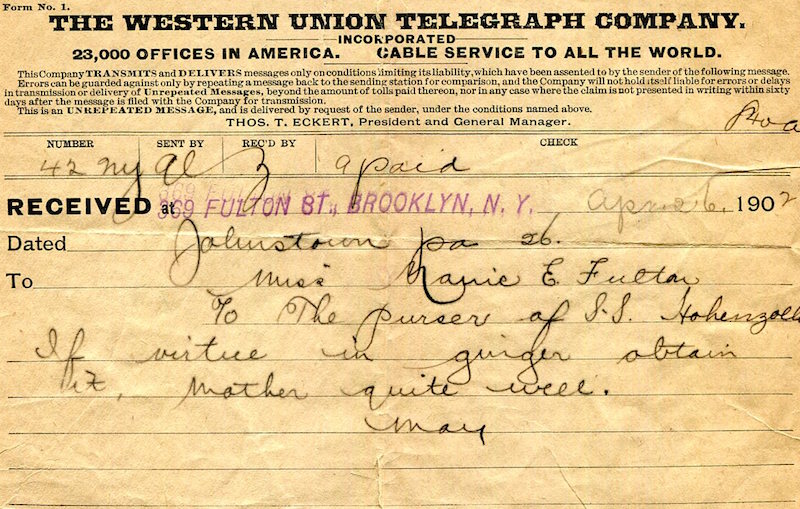 Form No. 1.
THE WESTERN UNION TELEGRAPH COMPANY.
INCORPORATED
23,000 OFFICES IN AMERICA. CABLE SERVICE TO ALL THE WORLD.
This Company TRANSMITS and DELIVERS messages only on conditions limiting its liability, which have been assented to by the sender of the following message.
Errors can be guarded against only by repeating a message back to the sending station for comparison, and the Company will not hold itself liable for errors or delays
in transmission or delivery of Unrepeated Messages, beyond the amount of tolls paid therefor, nor in any case where the claim is not presented in writing within sixty
days after the message is filed with the Company for transmission.
This is an UNREPEATED MESSAGE, and is delivered by request of the sender, under the conditions named above.
THOS. T. ECKERT, President and General Manager.
NUMBER SENT BY REC'D BY CHECK
42 ny 9 paid
RECEIVED at 369 FULTON ST., BROOKLYN, N. Y. 1902
Dated Johnstown pa 26.
To Miss E Fulton
To The purser of S.S. Hohenzoll
If virtue in ginger obtain
it, Mother quite well.
May